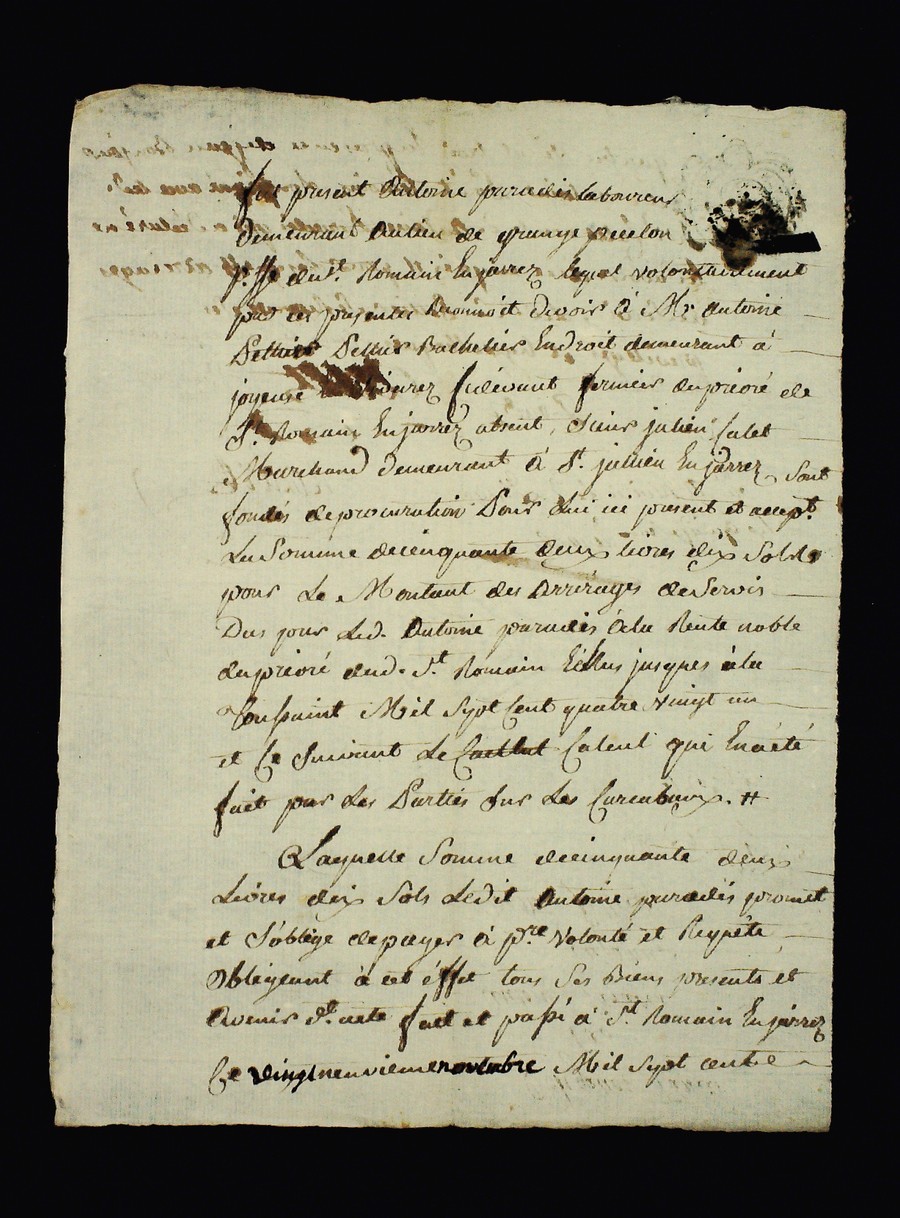 fut present Antoine paradis laboureur
demeurant Aulieu de grange
p.sse du St. Romain Enjarrez lequel volontairement
par ces presentes Reconnoit devoir à Mr Antoine
Pethier Bachelier Endroit demeurant à
joyeuse Cidevant fermier du prioré de
St Romain Enjarrez absent, Sieur julien Calet
Marchand demeurant à St. jullien Enjarrez Sont
fondés deprocuration Pour Lui ici present et accept.
La Somme decinquante deux livres dix Sols
pour Le Montant des Arrérages deServis
Dus pour Led. Antoine paradis à la Rente noble
duprioré dud. St Romain Echus jusques à la
Toussaint Mil Sept Cent quatre vingt un
et Ce Suivant Le Calcul qui Enaété
fait par Les Parties Sur Les
Laquelle Somme decinquante deux
Livres dix Sols Ledit Antoine paradis promet
et S'oblige depayer à pre Volonté et Requête
obligeant à cet éffet tous Ses Biens presents et
Avenir dt. acte fait et passé à St Romain Enjarrez
Ce vingtneuvieme novembre Mil Sept cent